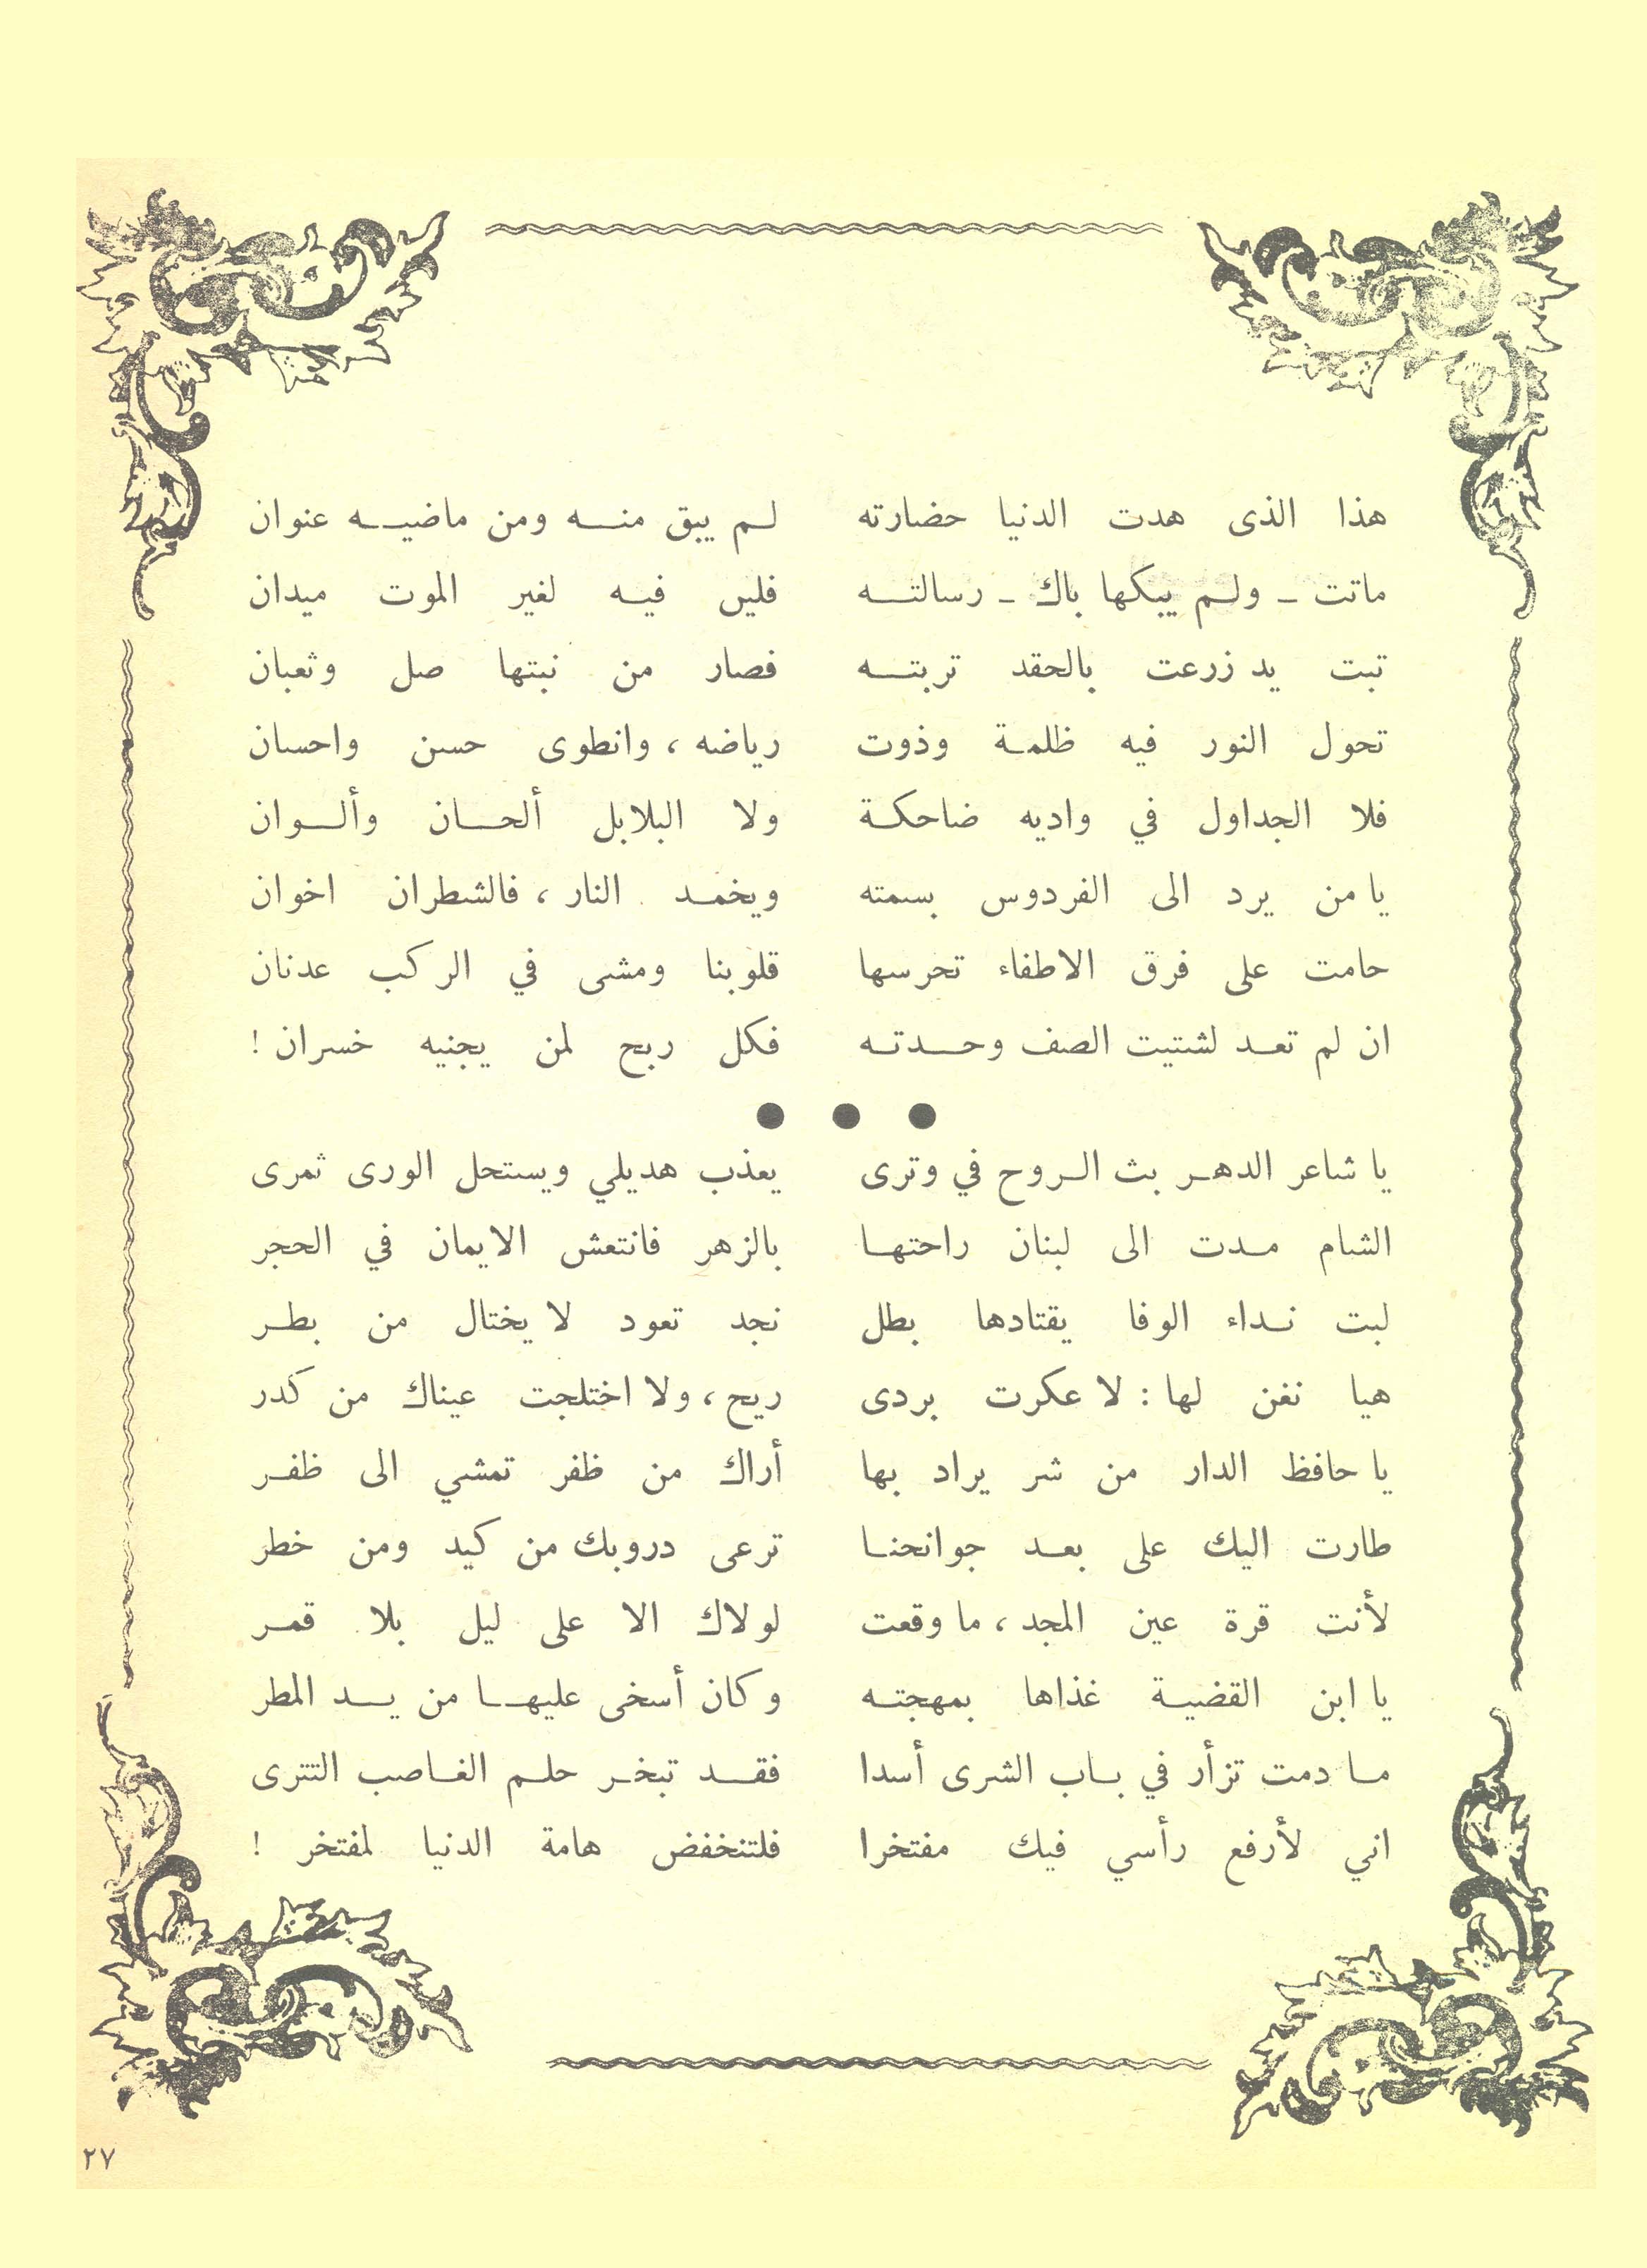 هذا الذى هدت الدنيا حضارته لم يبق منه ومن ماضيه عنوان
ماتت ـ ولم يبكها باك ـ رسالته فليس فيه لغير الموت ميدان
تبت يد زرعت بالحقد تربته فصار من نبتها صل وثعبان
تحول النور فيه ظلمة وذوت رياضه ، وانطوى حسن واحسان
فلا الجداول في واديه ضاحكة ولا البلابل ألحان وألوان
يا من يرد الى الفردوس بسمته ويخمد النار ، فالشطران اخوان
حامت على فرق الاطفاء تحرسها قلوبنا ومشى في الركب عدنان
ان لم تعد لشتيت الصف وحدته فكل ربح لمن يجنيه خسران !
● ● ●
يا شاعر الدهر بث الروح في وترى يعذب هديلي ويستحل الورى ثمرى
الشام مدت الى لبنان راحتها بالزهر فانتعش الايمان في الحجر
لبت نداء الوفا يقتادها بطل نجد تعود لا يختال من بطر
هيا نغن لها : لا عكرت بردى ريح ، ولا اختلجت عيناك من كدر
يا حافظ الدار من شر يراد بها أراك من ظفر تمشي الى ظفر
طارت اليك على بعد جوانحنا ترعى دروبك من كيد ومن خطر
لأنت قرة عين المجد ، ما وقعت لولاك الا على ليل بلا قمر
يا ابن القضية غذاها بمهجته وكان أسخى عليها من يد المطر
ما دمت تزأر في باب الشرى أسدا فقد تبخر حلم الغاصب التترى
اني لأرفع رأسي فيك مفتخرا فلتنخفض هامة الدنيا لمفتخر !
٢٧